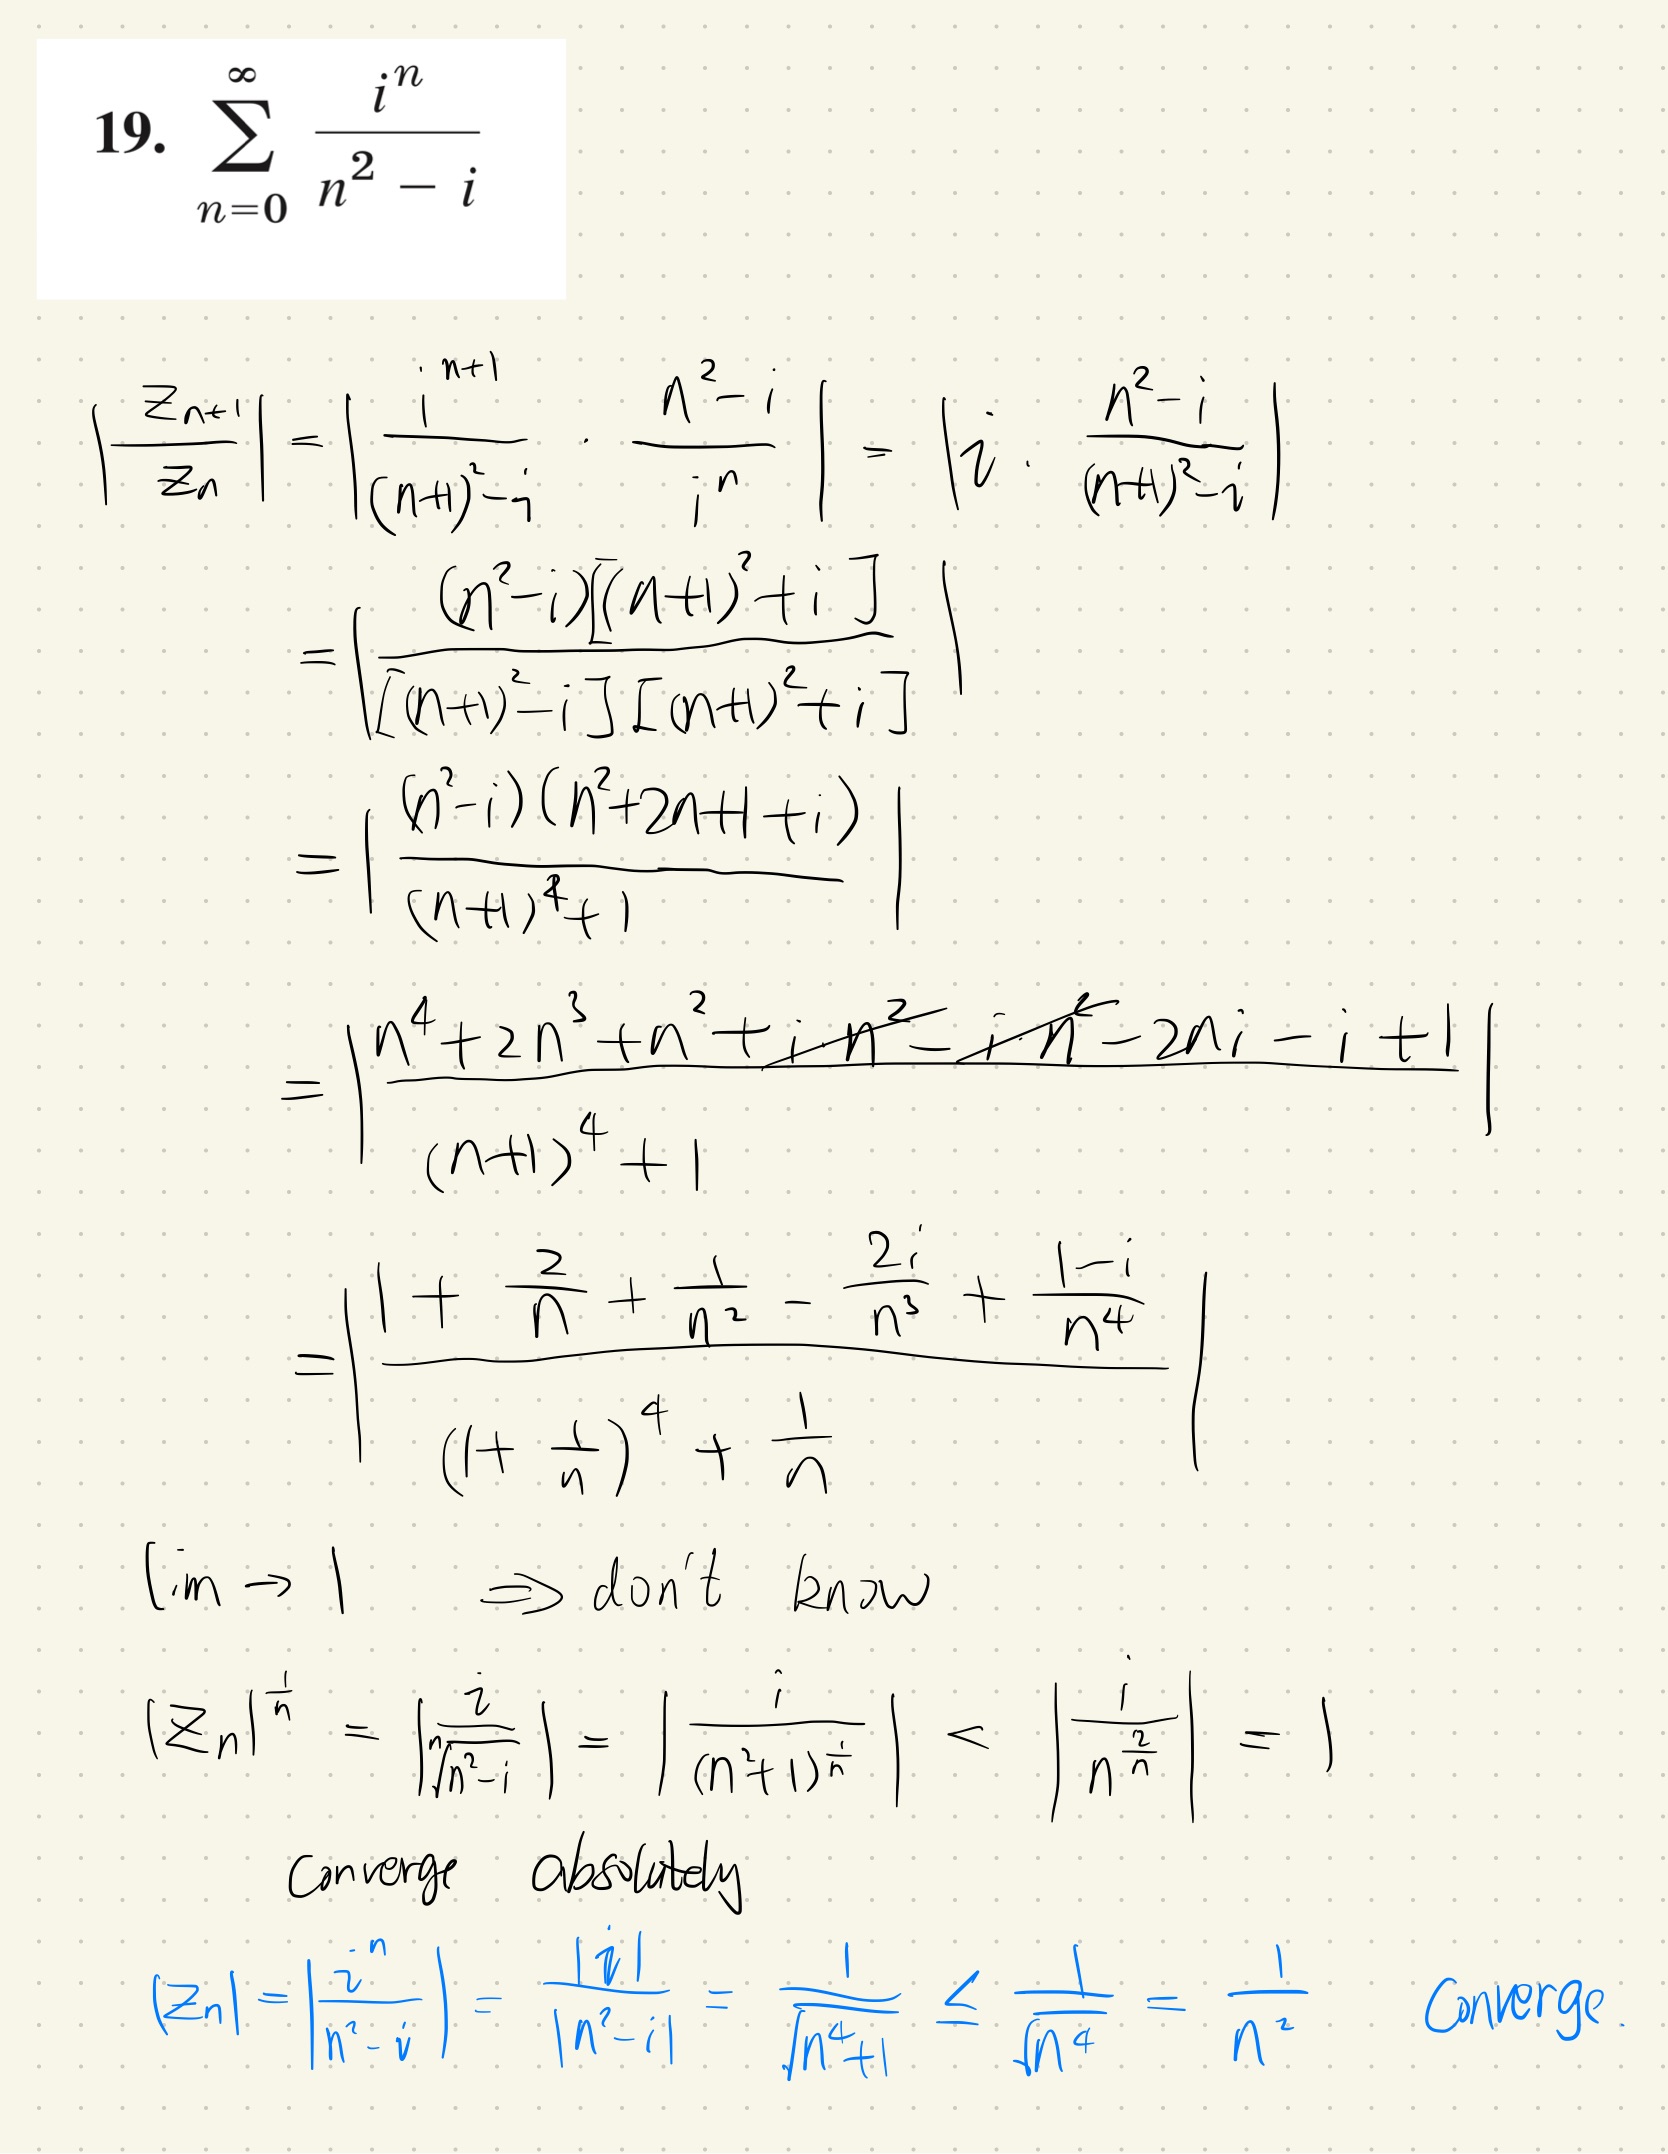 19. \sum_{n=0}^{\infty} \frac{i^n}{n^2 - i}
\left|\frac{z_{n+1}}{z_n}\right| = \left|\frac{i^{n+1}}{(n+1)^2 - i} \cdot \frac{n^2 - i}{i^n}\right| = \left|i \cdot \frac{n^2 - i}{(n+1)^2 - i}\right|
= \left|\frac{(n^2 - i)[(n+1)^2 + i]}{[(n+1)^2 - i][(n+1)^2 + i]}\right|
= \left|\frac{(n^2 - i)(n^2 + 2n + 1 + i)}{(n+1)^4 + 1}\right|
= \left|\frac{n^4 + 2n^3 + n^2 + \cancel{i \cdot n^2} - \cancel{i \cdot n^2} - 2ni - i + 1}{(n+1)^4 + 1}\right|
= \left|\frac{1 + \frac{2}{n} + \frac{1}{n^2} - \frac{2i}{n^3} + \frac{1-i}{n^4}}{(1 + \frac{1}{n})^4 + \frac{1}{n}}\right|
lim → 1 ⇒ don't know
|z_n|^{\frac{1}{n}} = \left|\frac{i}{\sqrt[n]{n^2 - i}}\right| = \left|\frac{i}{(n^2 + 1)^{\frac{1}{n}}}\right| < \left|\frac{i}{n^{\frac{2}{n}}}\right| = 1
Converge absolutely
|z_n| = \left|\frac{i^n}{n^2 - i}\right| = \frac{|i|}{|n^2 - i|} = \frac{1}{\sqrt{n^4 + 1}} ≤ \frac{1}{\sqrt{n^4}} = \frac{1}{n^2} Converge.